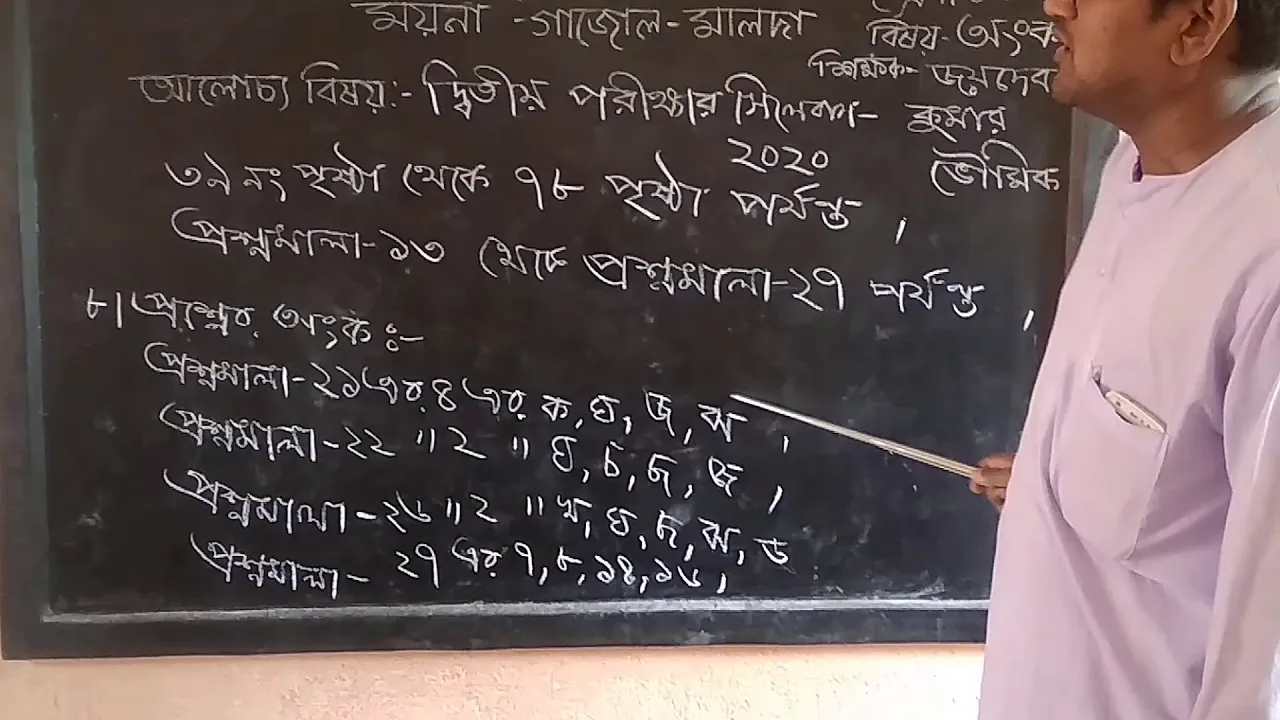 ময়না - গাজোল - মালদা
বিষয় - অংক
শিক্ষক - জয়দেব
কুমার
ভৌমিক
আলোচ্য বিষয়:- দ্বিতীয় পরীক্ষার সিলেবাস -
২০২০
৩৯ নং পৃষ্ঠা থেকে ৭৮ পৃষ্ঠা পর্যন্ত,
প্রশ্নমালা - ১৩ থেকে প্রশ্নমালা - ২৭ পর্যন্ত,
৮। প্রশ্নের অংক ঃ-
প্রশ্নমালা - ২১ এর ৪ এর ক, ঘ, জ, ঝ,
প্রশ্নমালা - ২২ " ২ " ঘ, চ, ছ, জ,
প্রশ্নমালা - ২৬ " ২ " খ, ঘ, ছ, ঝ, ড
প্রশ্নমালা - ২৭ এর ৭, ৮, ১৪, ১৬,